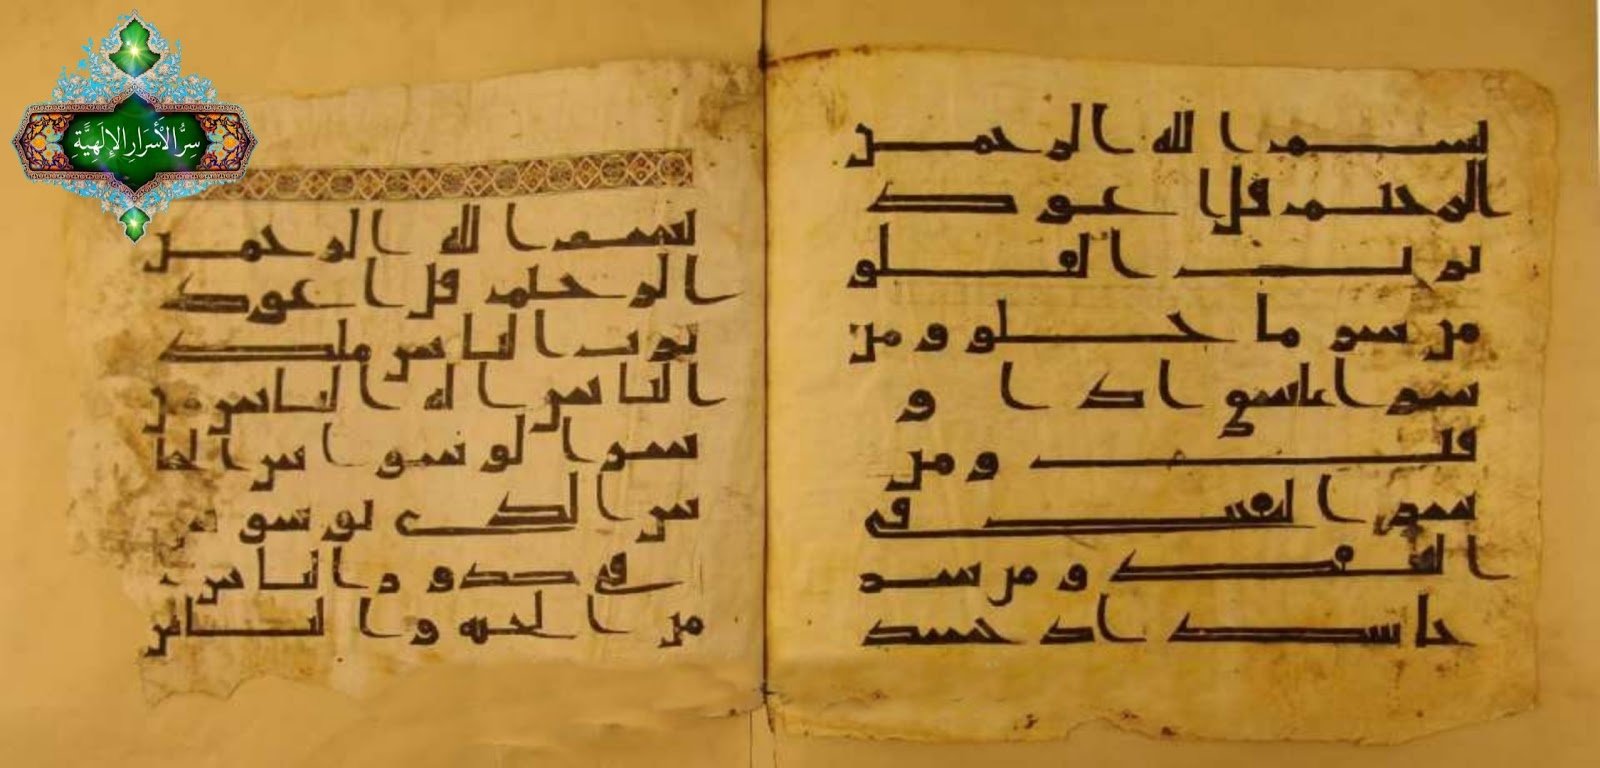 سِرُّ الْأَسْرَارِ الْإِلَهِيَّةِ
بسم الله الرحمن
الرحيم قل اعوذ
برب الفلق
من شر ما خلق و من
شر غاسق اذا و
قب و من
شر النفثت في
العقد و من شر
حاسد اذا حسد
بسم الله الرحمن
الرحيم قل اعوذ
برب الناس ملك
الناس اله الناس من
شر الوسواس الخنا
س الذي يوسوس
في صدور الناس
من الجنة و الناس